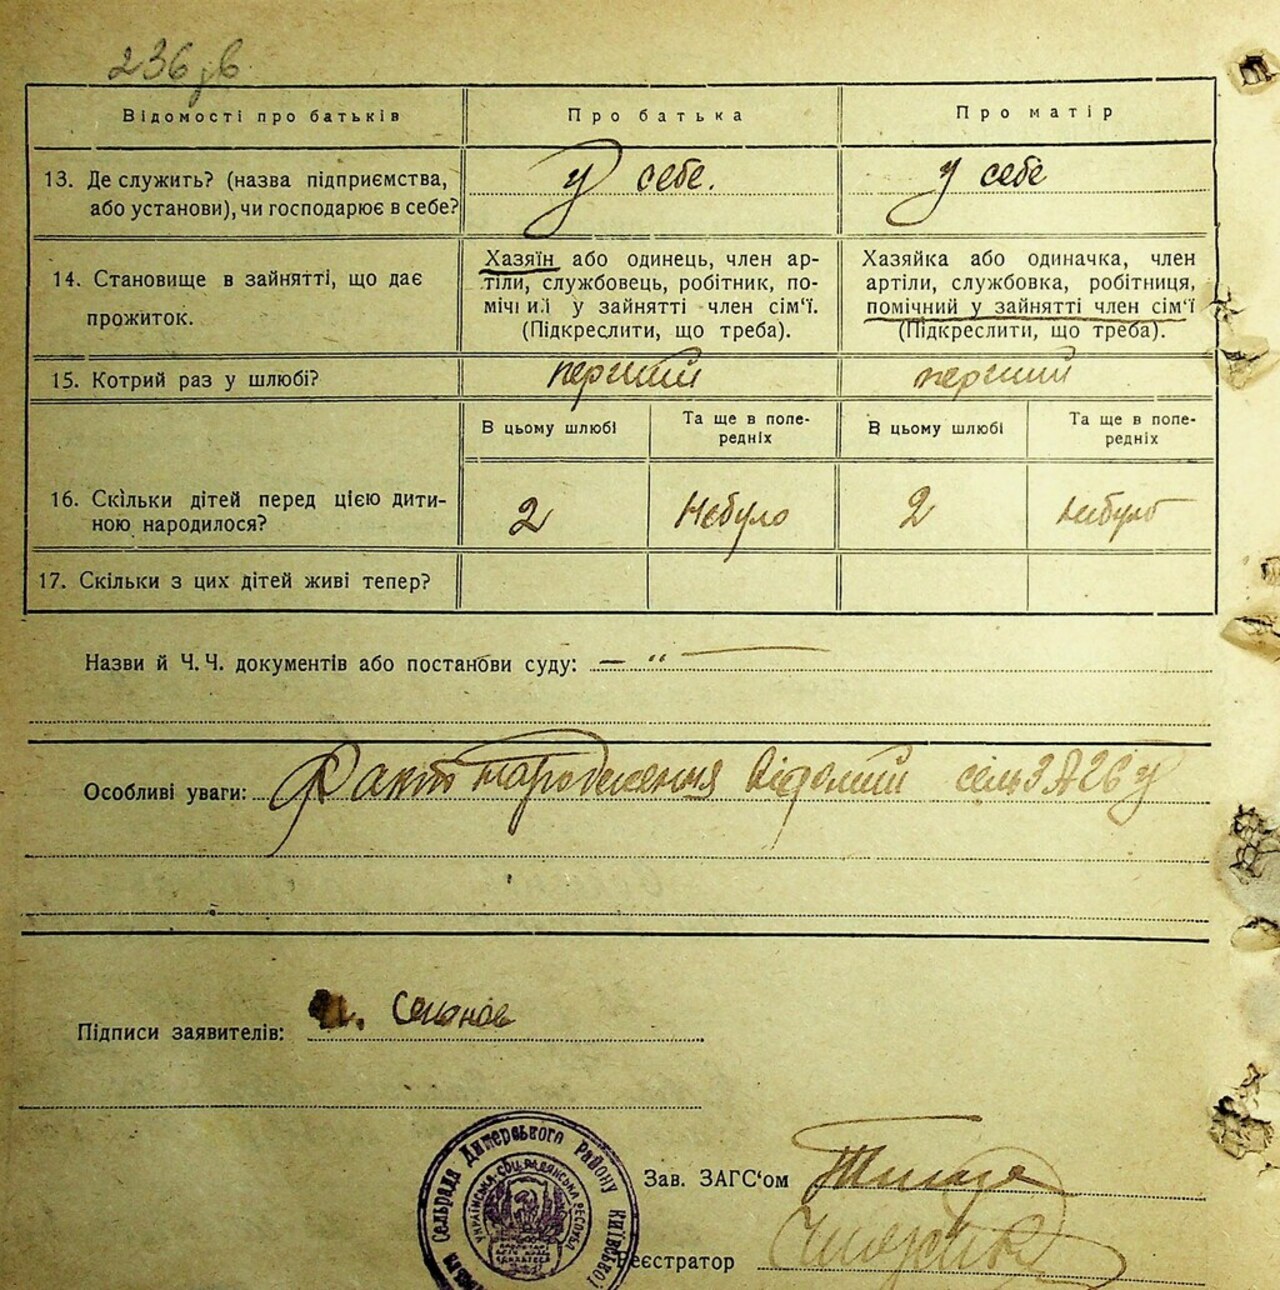 236 зв
Відомості про батьків
Про батька
Про матір
13. Де служить? (назва підприємства,
або установи), чи господарює в себе?
у себе.
у себе
14. Становище в зайнятті, що дає
прожиток.
Хазяїн або одинець, член ар-
тіли, службовець, робітник, по-
мічний у зайнятті член сім‘ї.
(Підкреслити, що треба).
Хазяйка або одиначка, член
артіли, службовка, робітниця,
помічний у зайнятті член сім‘ї
(Підкреслити, що треба).
15. Котрий раз у шлюбі?
перший
перший
В цьому шлюбі
Та ще в попе-
редніх
В цьому шлюбі
Та ще в попе-
редніх
16. Скільки дітей перед цією дити-
ною народилося?
2
Небуло
2
небуло
17. Скільки з цих дітей живі тепер?
Назви й Ч. Ч. документів або постанови суду: — " —
Особливі уваги: Факт народження відомий
Підписи заявителів:
Сельрада Димерського Району Київської
Українська Соц. Радянська Республ
Зав. ЗАГС‘ом
Реєстратор